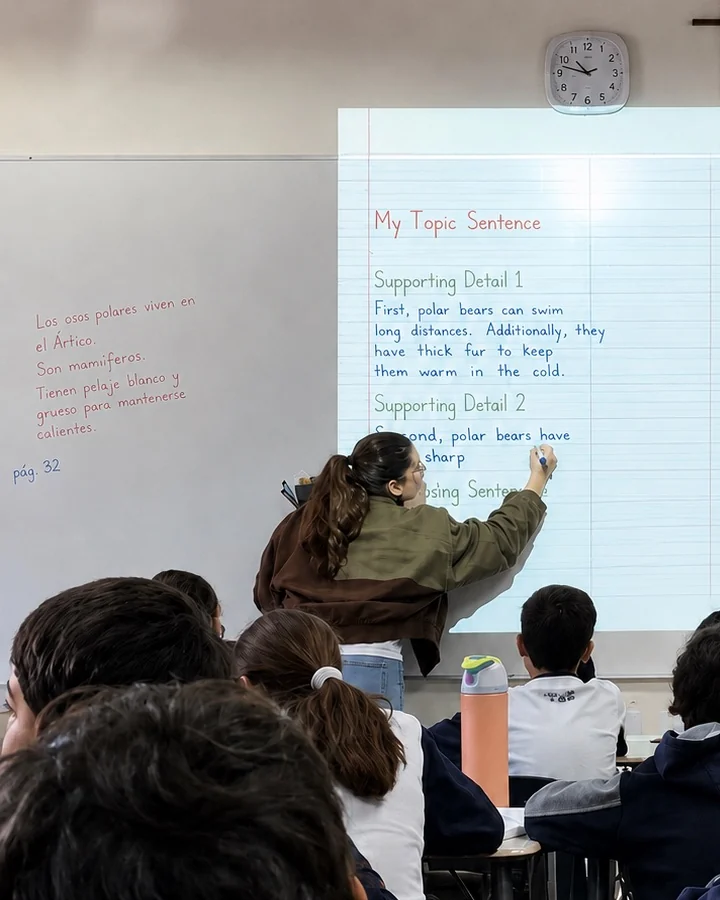 Los osos polares viven en
el Ártico.
Son mamiíferos.
Tienen pelaje blanco y
grueso para mantenerse
calientes.
pág. 32
My Topic Sentence
Supporting Detail 1
First, polar bears can swim
long distances. Additionally, they
have thick fur to keep
them warm in the cold.
Supporting Detail 2
Second, polar bears have
sharp
Sentence
12
1
2
3
4
5
6
7
8
9
10
11